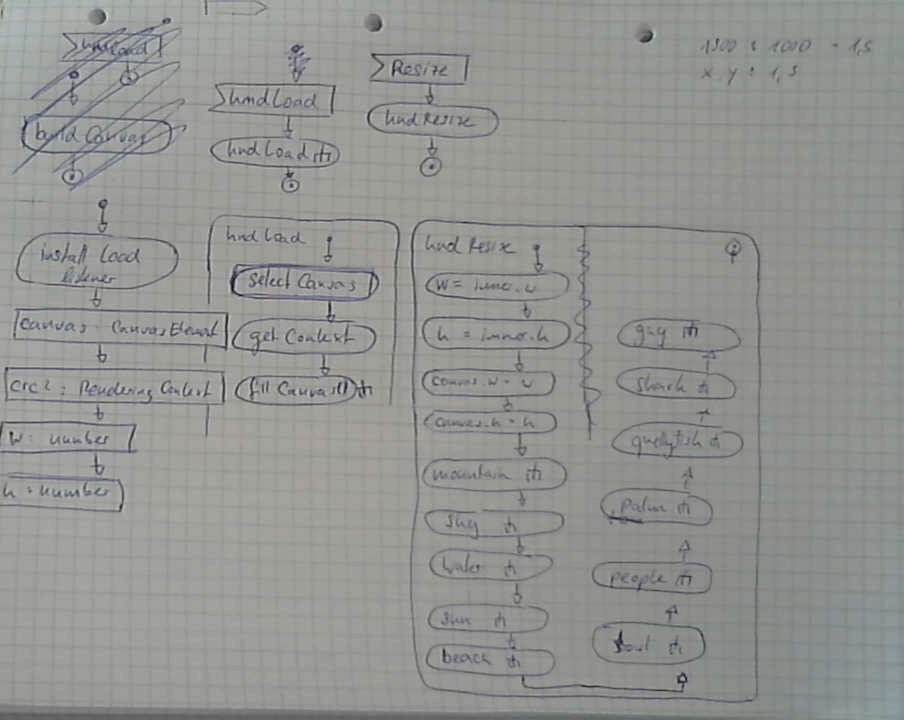 hndLoad
build Canvas
hndLoad
hndLoad
Resize
hndResize
1500 : 1000 = 1,5
x : y : 1,5
install Load
listener
canvas : CanvasElement
crc2 : Rendering Context
w : number
h : number
hnd Load
Select Canvas
get Context
fill Canvas()
hnd Resize
w = inner.w
h = inner.h
canvas.w = w
canvas.h = h
mountain
sky
water
sun
beach
boat
people
palm
quellyfish
shark
guy